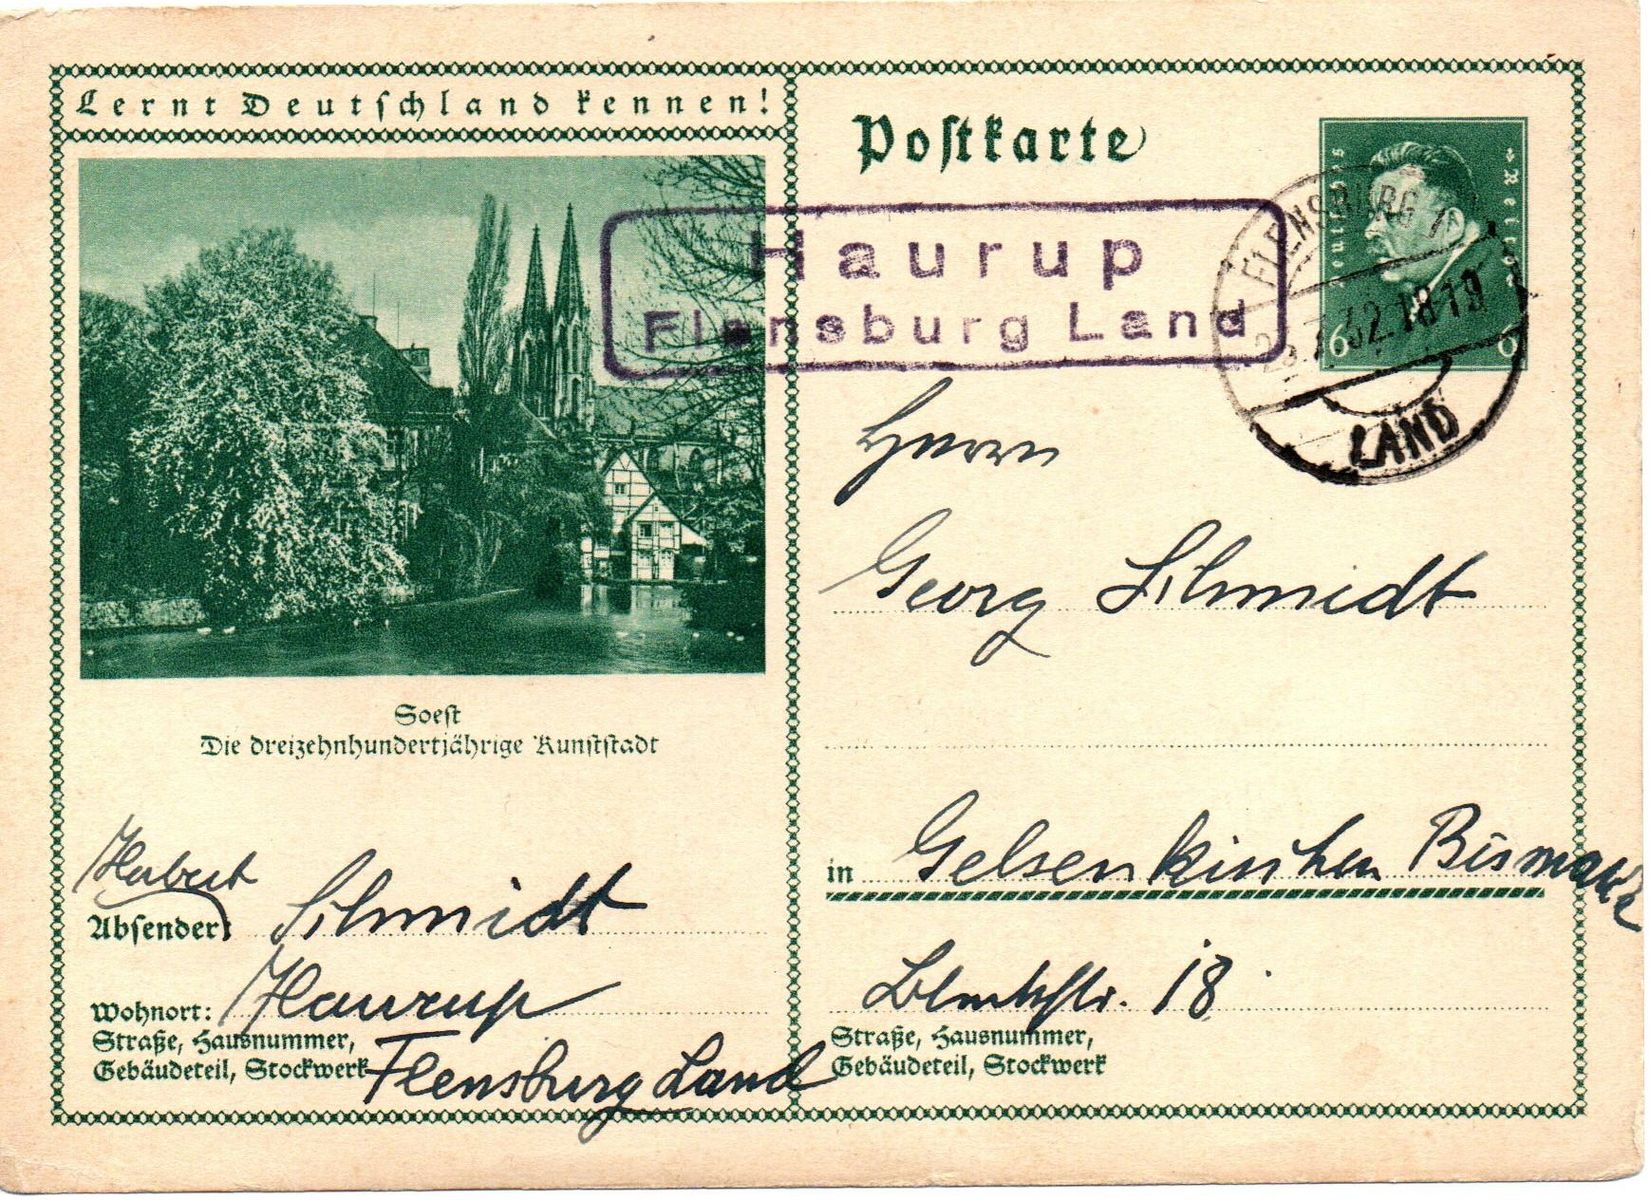 Lernt Deutschland kennen!
Postkarte
Deutsches Reich
6 6
FLENSBURG
.7.32.18-19
LAND
Haurup
Flensburg Land
Soest
Die dreizehnhundertjährige Kunststadt
Herrn
Georg Schmidt
in Gelsenkirchen Bismarck
18
Straße, Hausnummer,
Gebäudeteil, Stockwerk
Herbert
Absender: Schmidt
Wohnort: Haurup
Straße, Hausnummer,
Gebäudeteil, Stockwerk Flensburg Land